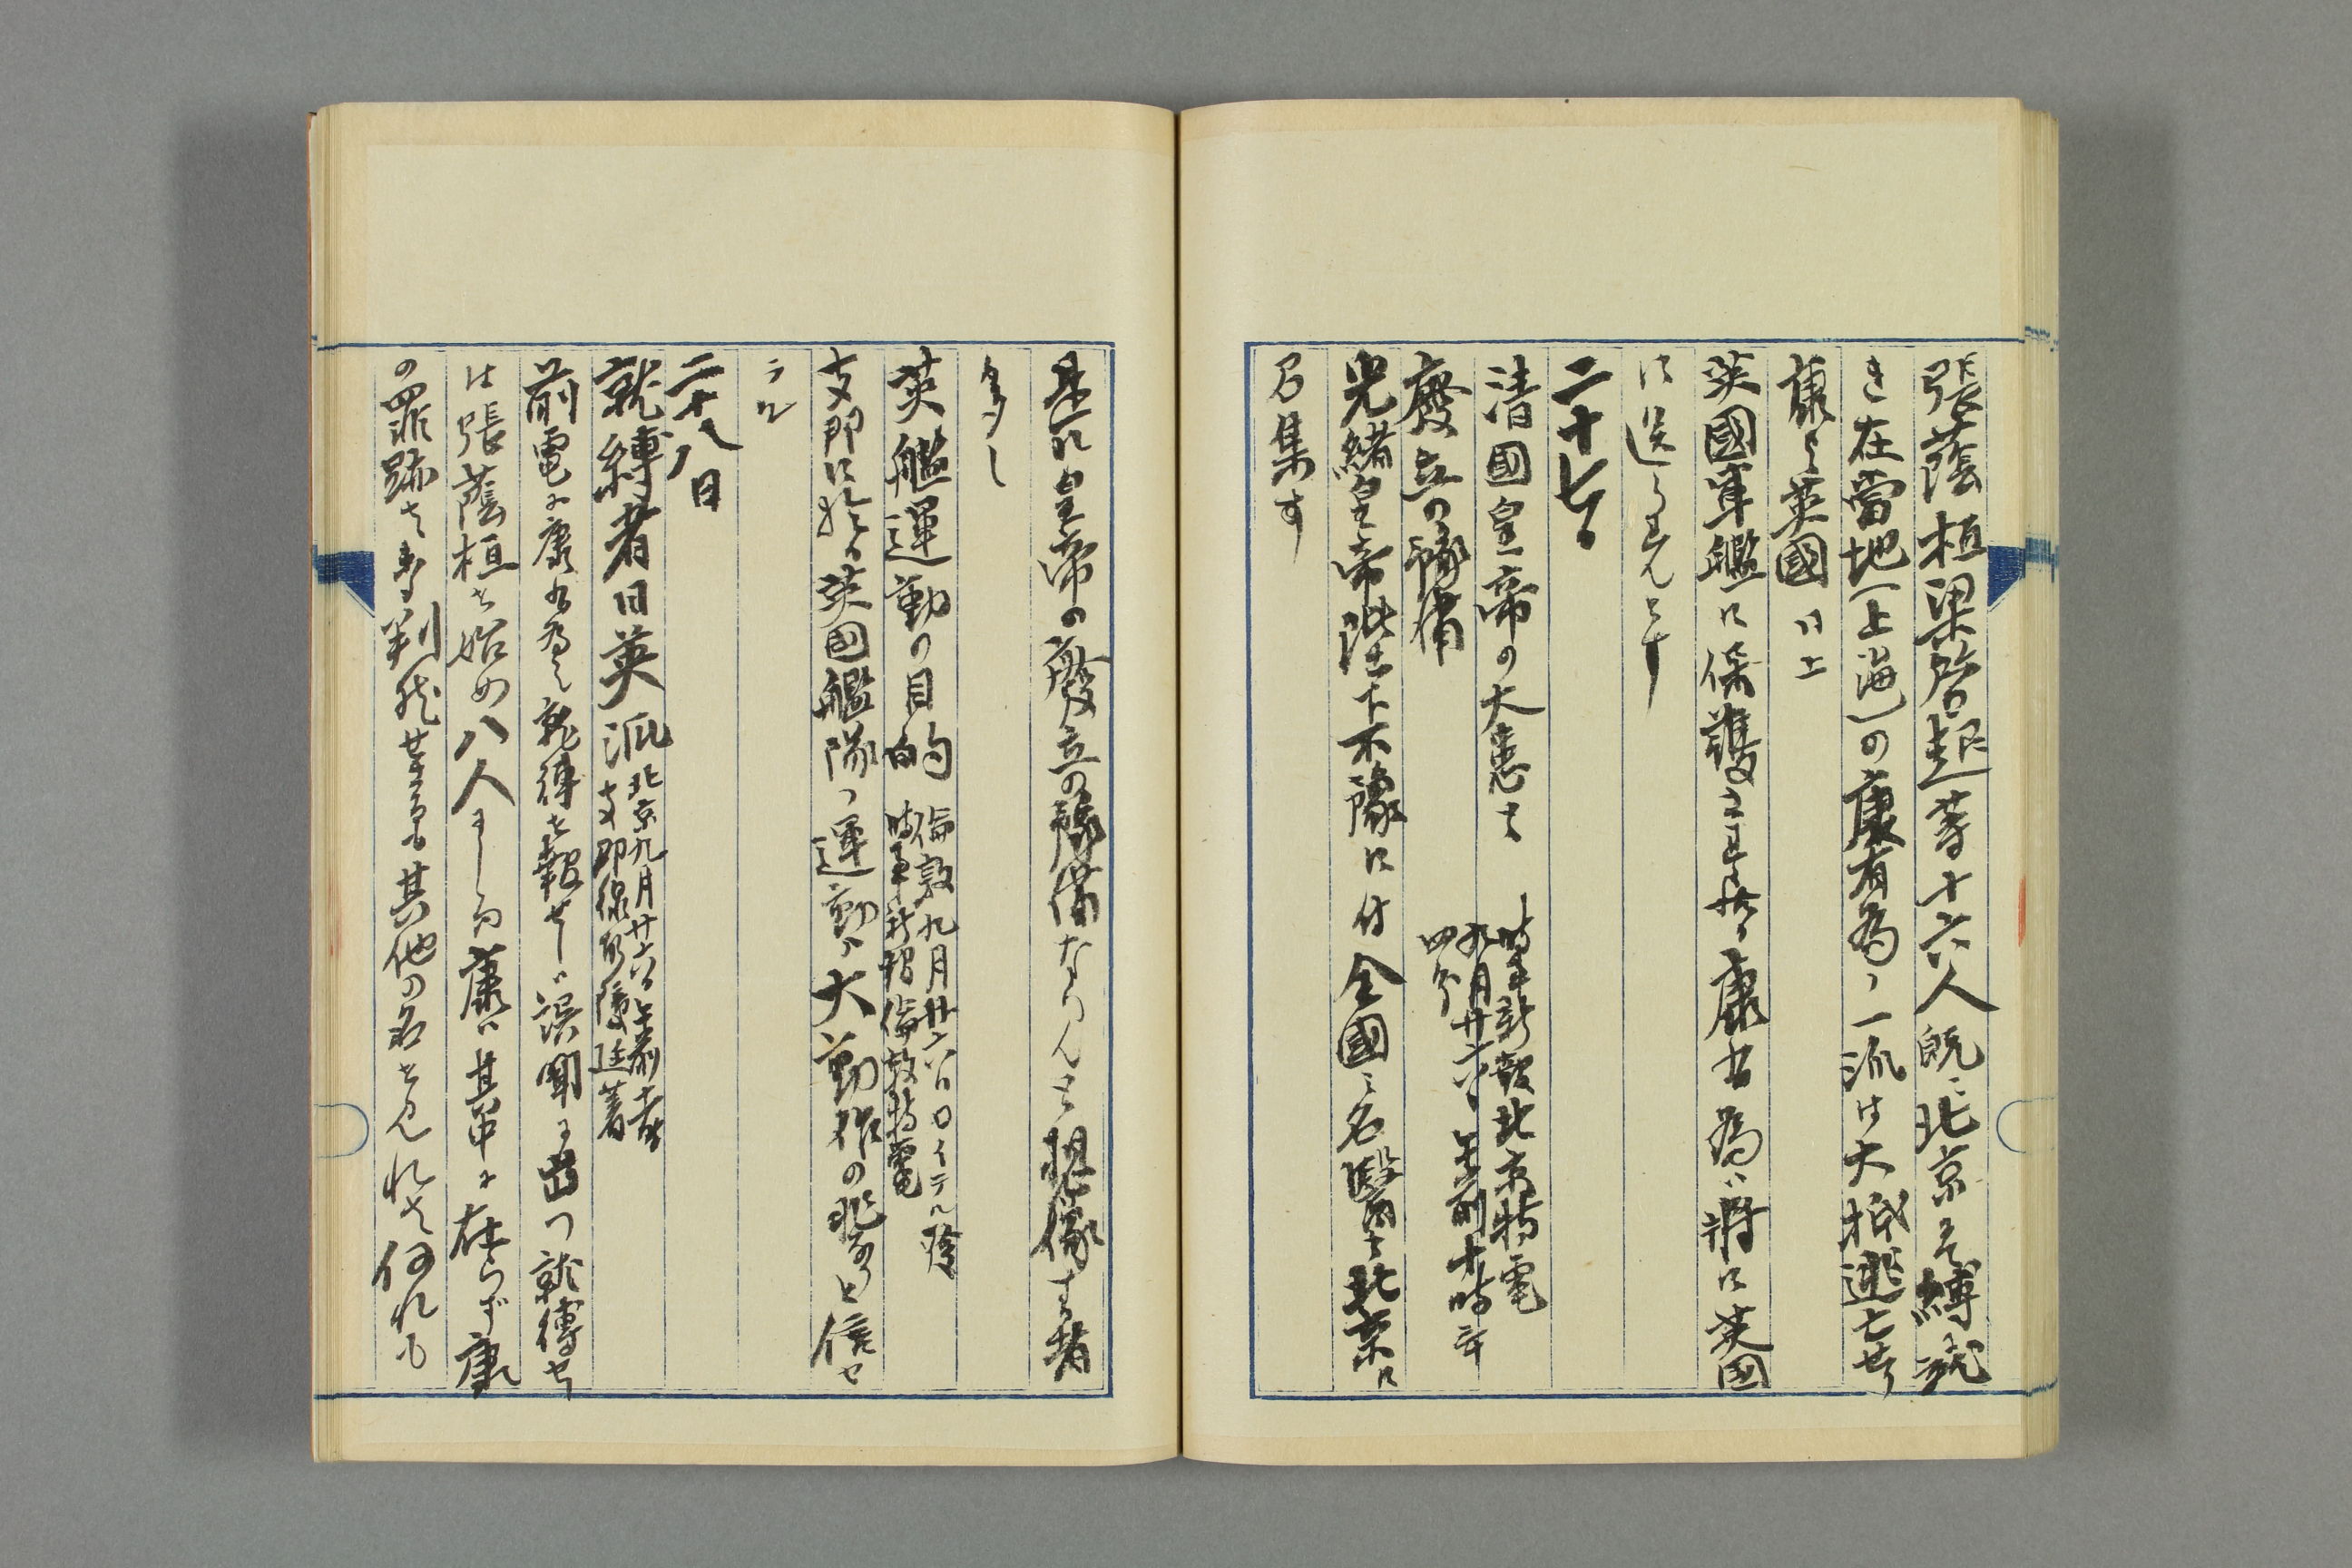 張蔭桓梁啓超等十六人既に北京にて縛に就
き在當地(上海)の康有為の一派は大抵逃亡せり
康と英國 同上
英國軍艦に保護されたる康有為は將に英国
に送られんとす
二十七日
清國皇帝の大患は
廢立の豫備
時事新報北京特電
九月廿六日午前十時三十
四分
光緒皇帝陛下不豫に付全國の名醫を北京に
召集す
是れ皇帝の廢立の豫備ならんと想像する者
多し
英艦運動の目的
倫敦九月廿六日ロイテル發
時事新報倫敦特電
支那に於る英国艦隊の運動は大動作の兆なりと信せ
らる
二十八日
就縛者曰英派
北京九月廿六日午前十一時
支那保線障延着
前電に康有為の就縛を報せしは誤聞に出つ就縛せし
は張蔭桓を始め八人にして康は其中に在らず康
の罪跡は判然せざるも其他の名を見れは何れも